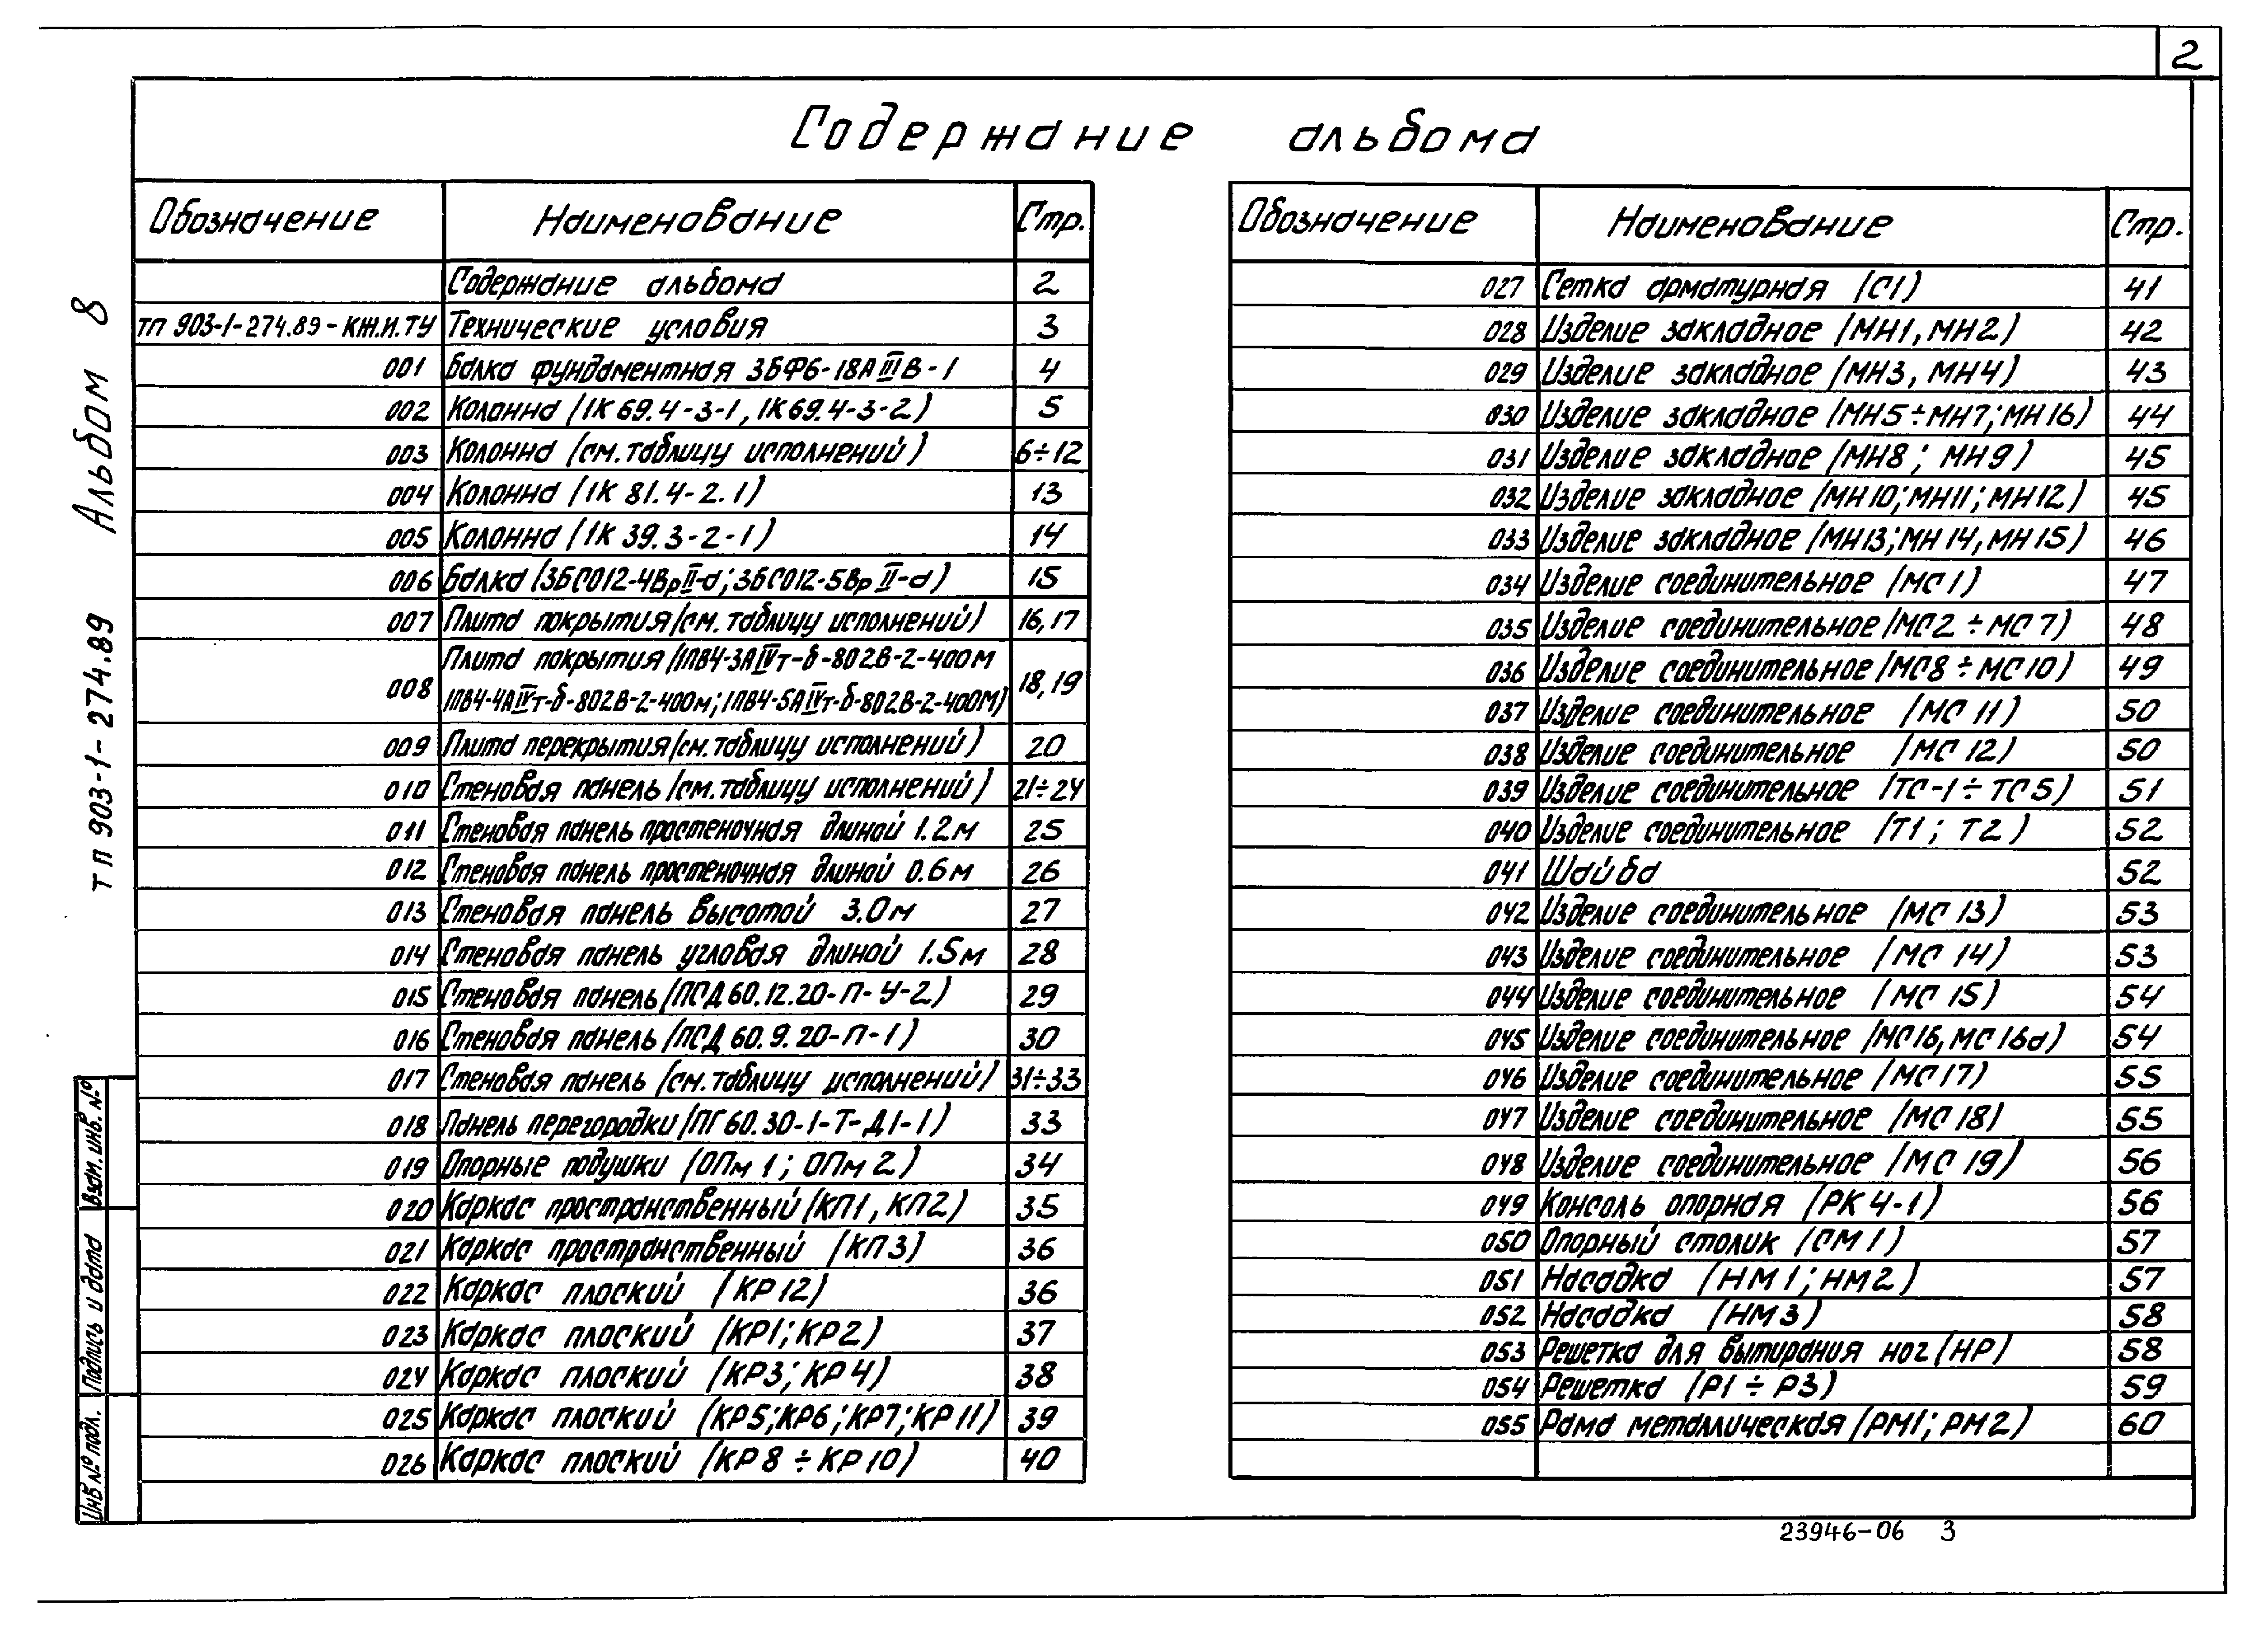 2
Содержание альбома
Обозначение Наименование Стр.
Содержание альбома 2
ТП 903-1-274.89-КЖ.И.ТУ Технические условия 3
001 Балка фундаментная 3БФ6-18АIIIВ-1 4
002 Колонна (1К69.4-3-1, 1К69.4-3-2) 5
003 Колонна (см. таблицу исполнений) 6÷12
004 Колонна (1К 81.4-2.1) 13
005 Колонна (1К 39.3-2-1) 14
006 Балка (3БСО12-4ВрII-а; 3БСО12-5ВрII-а) 15
007 Плита покрытия (см. таблицу исполнений) 16, 17
008 Плита покрытия (1ПВ4-3АIVт-б-802В-2-400М
1ПВ4-4АIVт-б-802В-2-400м; 1ПВ4-5АIVт-б-802В-2-400М) 18, 19
009 Плита перекрытия (см. таблицу исполнений) 20
010 Стеновая панель (см. таблицу исполнений) 21÷24
011 Стеновая панель простеночная длиной 1.2м 25
012 Стеновая панель простеночная длиной 0.6м 26
013 Стеновая панель высотой 3.0м 27
014 Стеновая панель угловая длиной 1.5м 28
015 Стеновая панель (ПСД 60.12.20-П-У-2) 29
016 Стеновая панель (ПСД 60.9.20-П-1) 30
017 Стеновая панель (см. таблицу исполнений) 31÷33
018 Панель перегородки (ПГ60.30-1-Т-Д1-1) 33
019 Опорные подушки (ОПм 1; ОПм 2) 34
020 Каркас пространственный (КП1, КП2) 35
021 Каркас пространственный (КП3) 36
022 Каркас плоский (КР12) 36
023 Каркас плоский (КР1; КР2) 37
024 Каркас плоский (КР3; КР4) 38
025 Каркас плоский (КР5; КР6; КР7; КР11) 39
026 Каркас плоский (КР8 ÷ КР10) 40
Обозначение Наименование Стр.
027 Сетка арматурная (С1) 41
028 Изделие закладное (МН1, МН2) 42
029 Изделие закладное (МН3, МН4) 43
030 Изделие закладное (МН5÷МН7; МН16) 44
031 Изделие закладное (МН8; МН9) 45
032 Изделие закладное (МН10; МН11; МН12) 45
033 Изделие закладное (МН13; МН14, МН15) 46
034 Изделие соединительное (МС1) 47
035 Изделие соединительное (МС2 ÷ МС7) 48
036 Изделие соединительное (МС8 ÷ МС10) 49
037 Изделие соединительное (МС 11) 50
038 Изделие соединительное (МС 12) 50
039 Изделие соединительное (ТС-1 ÷ ТС5) 51
040 Изделие соединительное (Т1; Т2) 52
041 Шайба 52
042 Изделие соединительное (МС 13) 53
043 Изделие соединительное (МС 14) 53
044 Изделие соединительное (МС 15) 54
045 Изделие соединительное (МС16, МС16а) 54
046 Изделие соединительное (МС17) 55
047 Изделие соединительное (МС 18) 55
048 Изделие соединительное (МС 19) 56
049 Консоль опорная (РК 4-1) 56
050 Опорный столик (СМ1) 57
051 Насадка (НМ1; НМ2) 57
052 Насадка (НМ3) 58
053 Решетка для вытирания ног (НР) 58
054 Решетка (Р1 ÷ Р3) 59
055 Рама металлическая (РМ1; РМ2) 60
ТП 903-1-274.89 Альбом 8
Взам. инв. №
Подпись и дата
Инв № подл.
23946-06 3